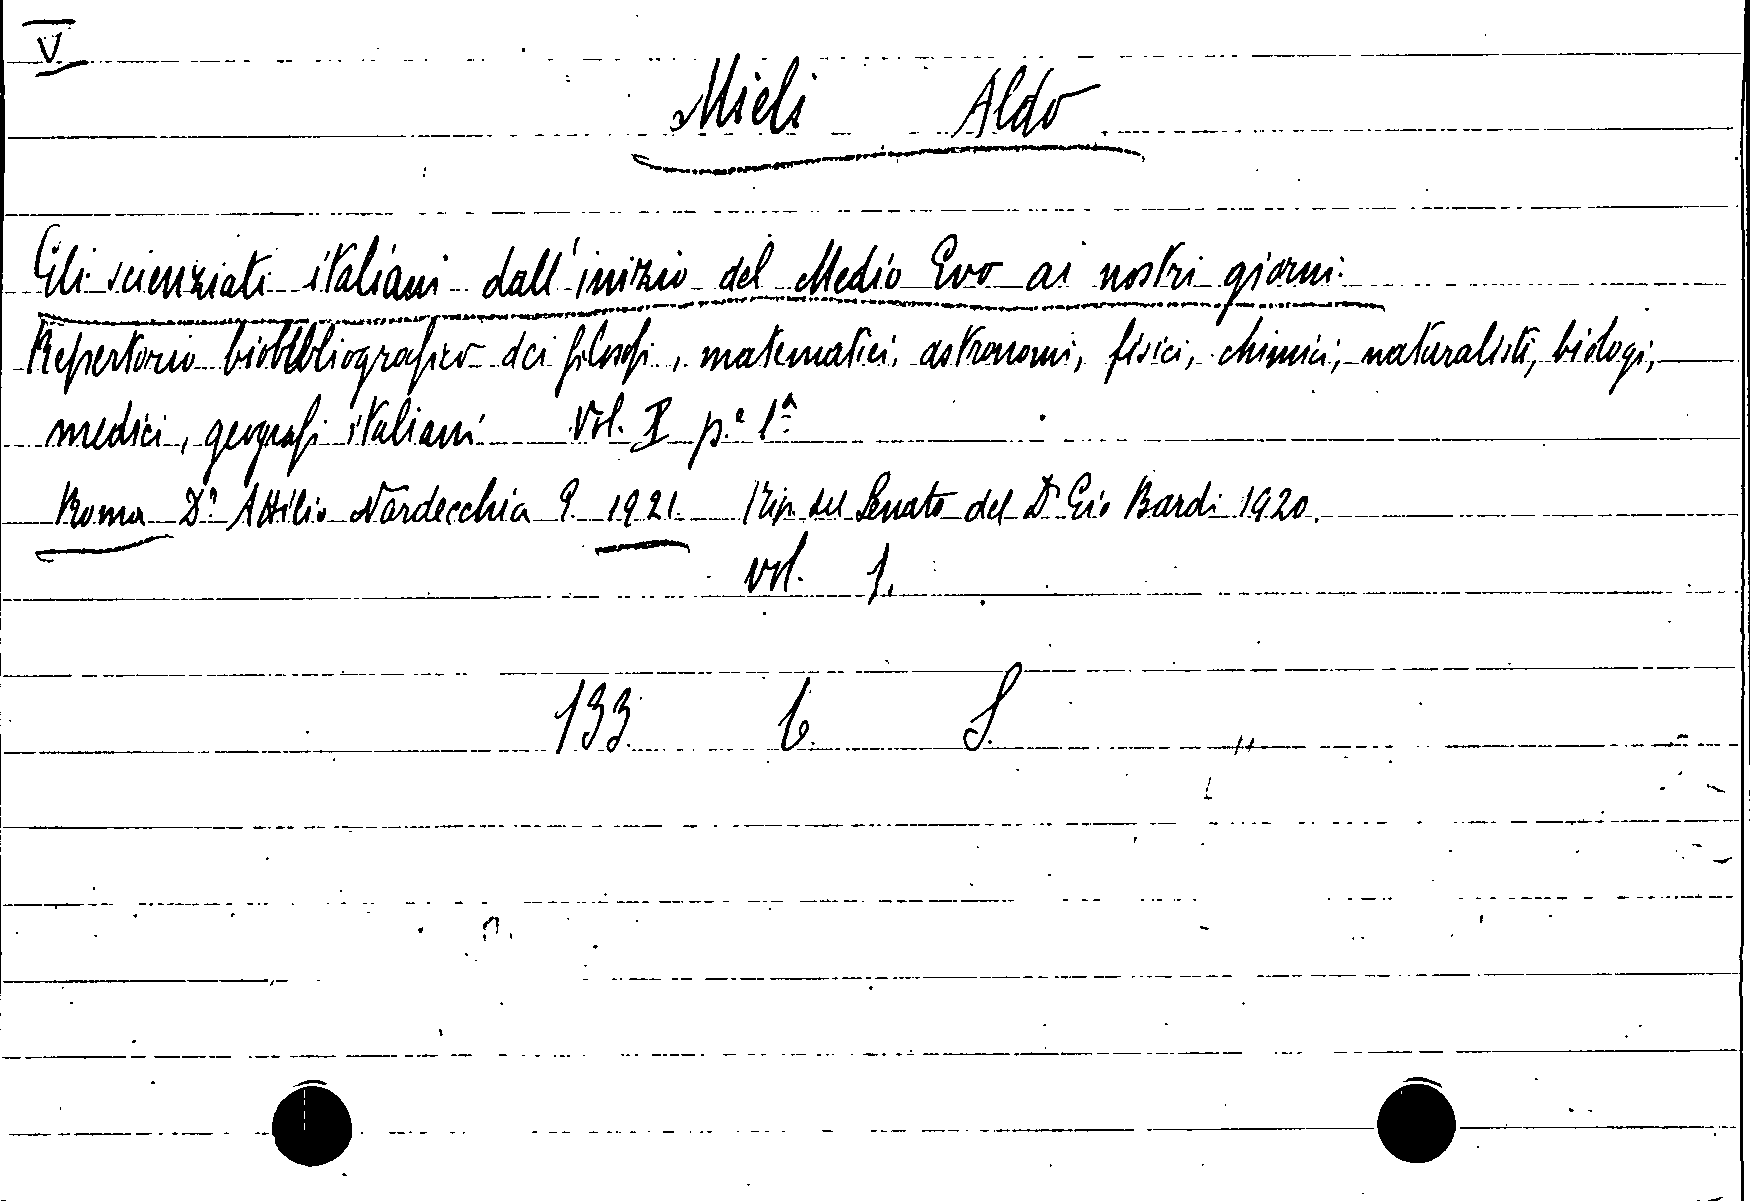 V
Mieli Aldo
Gli scienziati italiani dall'inizio del Medio Evo ai nostri giorni.
Repertorio biobibliografico dei filosofi, matematici, astronomi, fisici, chimici, naturalisti, biologi,
medici, geografi italiani Vol. I p.e 1a
Roma Dr Attilio Nardecchia 1921. Tip. del Senato del Dr Gio Bardi 1920.
vol. 1.
133 6. S.